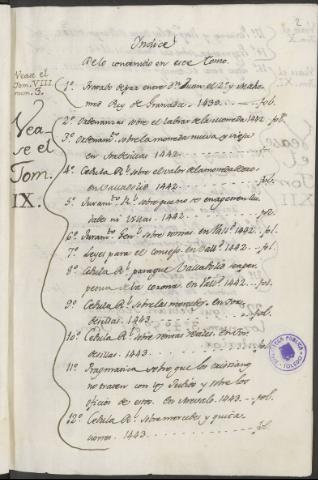 2
Indice
De lo contenido en este Tomo.
Vease el
Tom. VIII
num. 3.
1º. Tratado de paz entre Dn. Juan el 2º. y
Rey de Granada. 1430. fol.
Vea-
se el
Tom.
IX.
2º. Ordenanzas sobre el labrar de la moneda 1442. fol.
3º. Ordenam.to sobre la moneda nueva y vieja
en 1442.
4º. Cedula Rl. sobre el valor de la moneda
en 1442. fol.
5º. Juram.to Rl. sobre que no se enagenen
ni Villas. 1442. fol.
6º. Juram.to sobre en Vall.d 1442. fol.
7º. Leyes para el consejo en Vall.d 1442. fol.
8º. Cedula Rl. para que Valladolid sea
de la corona en Vall.d 1442. fol.
9º. Cedula Rl. sobre las en Tor-
desillas. 1443. fol.
10º. Cedula Rl. sobre rentas reales. en Tor-
desillas. 1443. fol.
11º. Pragmatica sobre que los cristianos
no traten con los Judios y sobre los
oficios de estos. En Arevalo. 1443. fol.
12º. Cedula Rl. sobre mercedes y quita-
ciones. 1443. fol.
BIBLIOTECA PUBLICA
TOLEDO